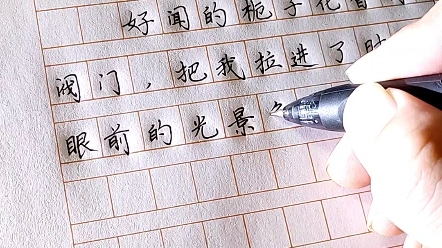 好闻的栀子花香
阀门，把我拉进了时
眼前的光景